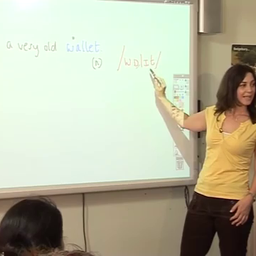 a very old wallet
(n) /wɒlɪt/